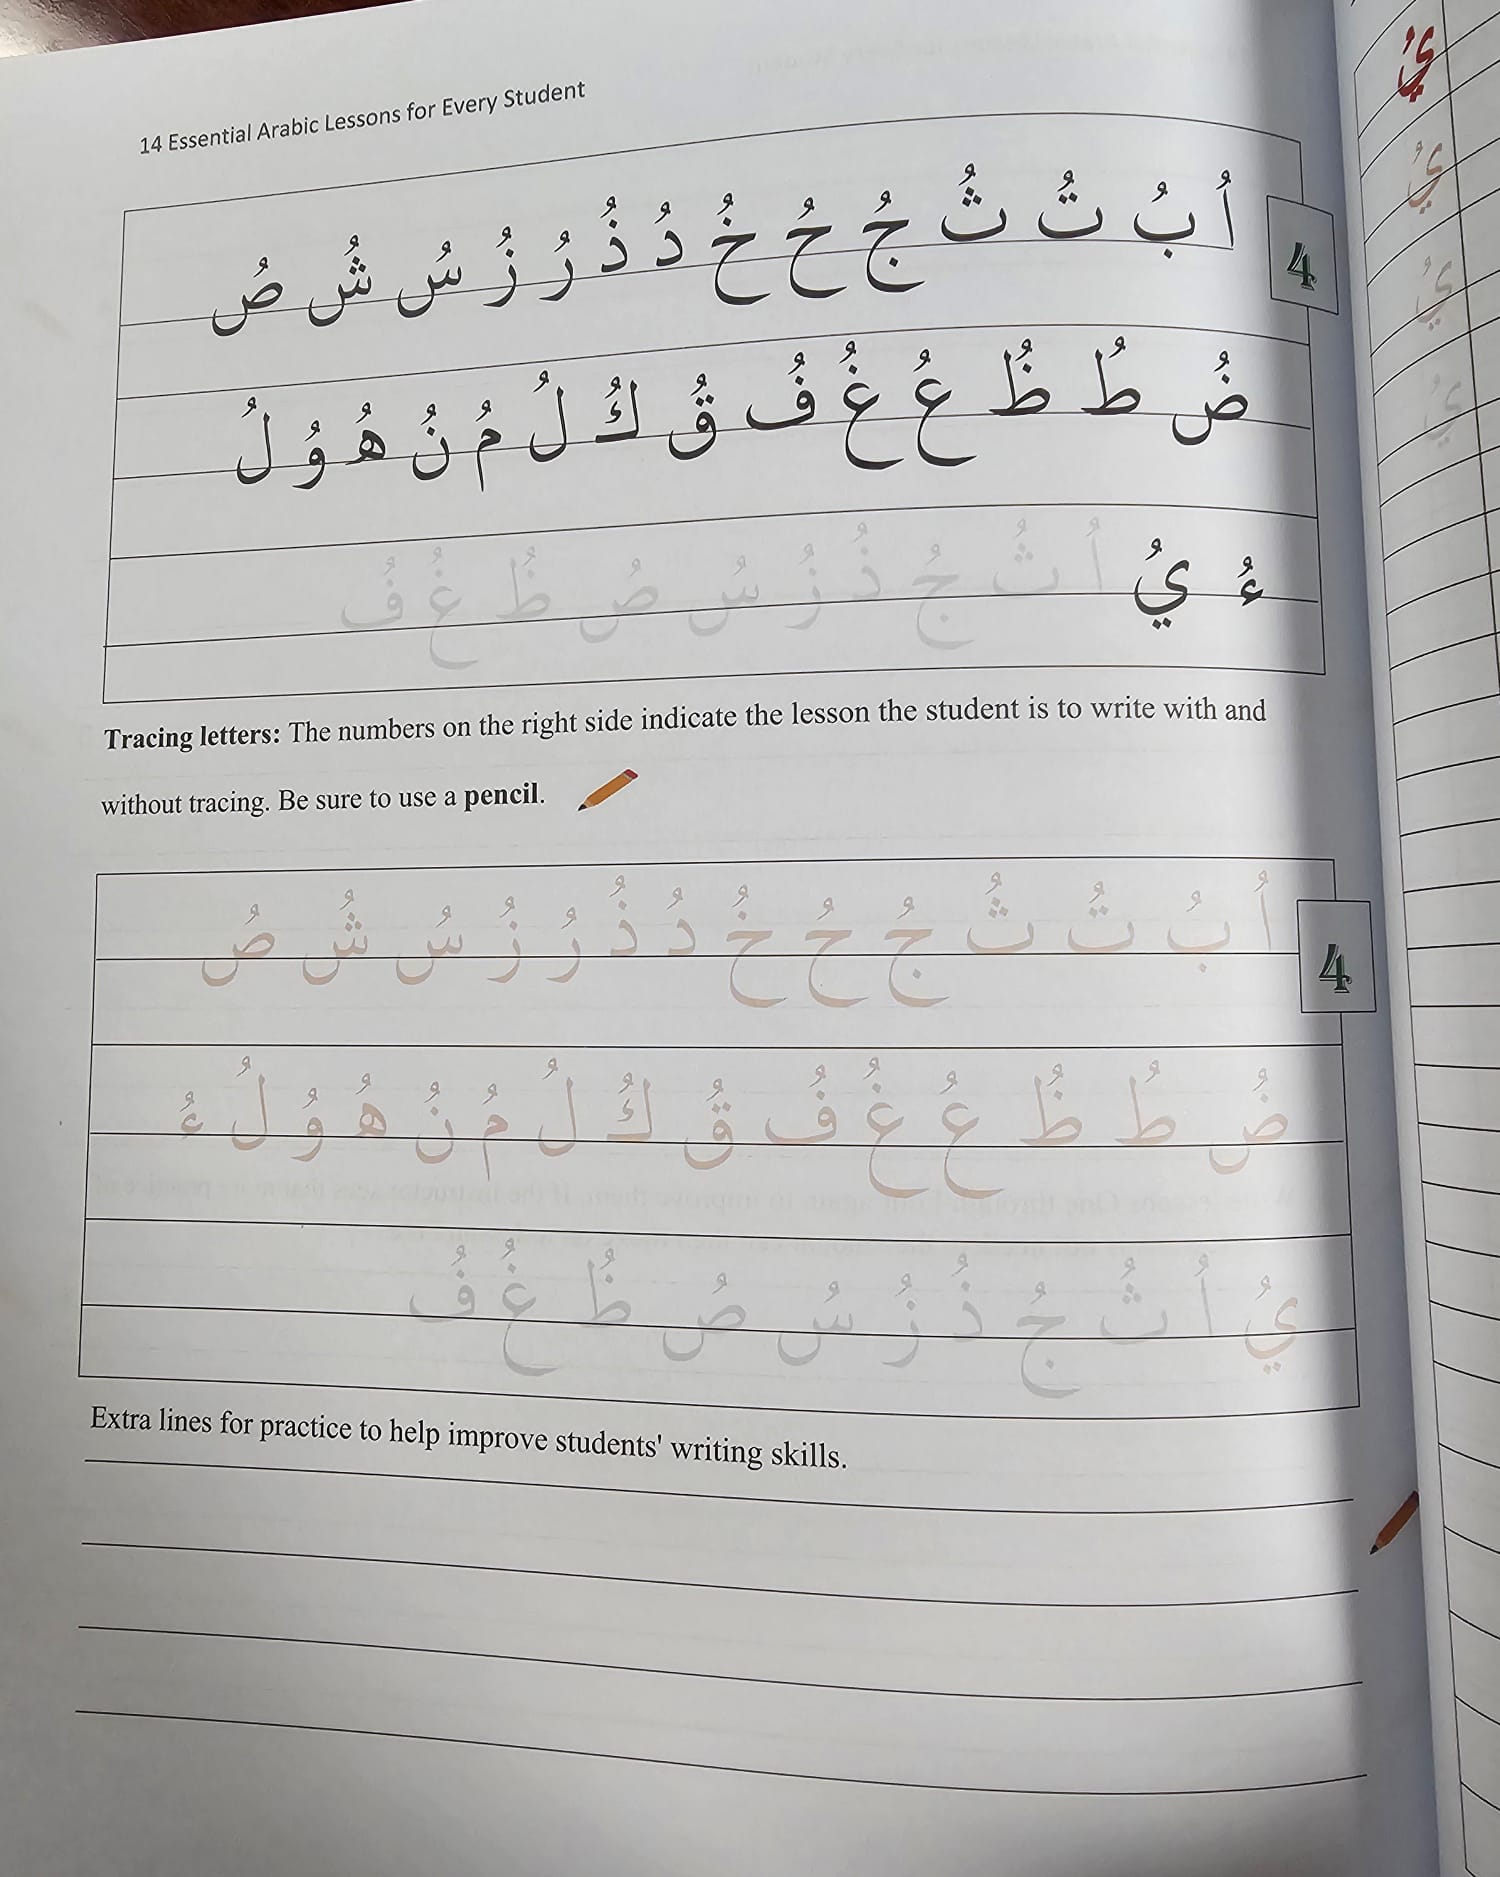 14 Essential Arabic Lessons for Every Student
أُ بُ تُ ثُ جُ حُ خُ دُ ذُ رُ زُ سُ شُ صُ
4
ضُ طُ ظُ عُ غُ فُ قُ كُ لُ مُ نُ هُ وُ لُ
ءُ يُ أُ ثُ جُ ذُ زُ سُ صُ ظُ غُ فُ
Tracing letters: The numbers on the right side indicate the lesson the student is to write with and
without tracing. Be sure to use a pencil.
أُ بُ تُ ثُ جُ حُ خُ دُ ذُ رُ زُ سُ شُ صُ
4
ضُ طُ ظُ عُ غُ فُ قُ كُ لُ مُ نُ هُ وُ لُ ءُ
يُ أُ ثُ جُ ذُ زُ سُ صُ ظُ غُ فُ
Extra lines for practice to help improve students' writing skills.
يُ
يُ
يُ
يُ